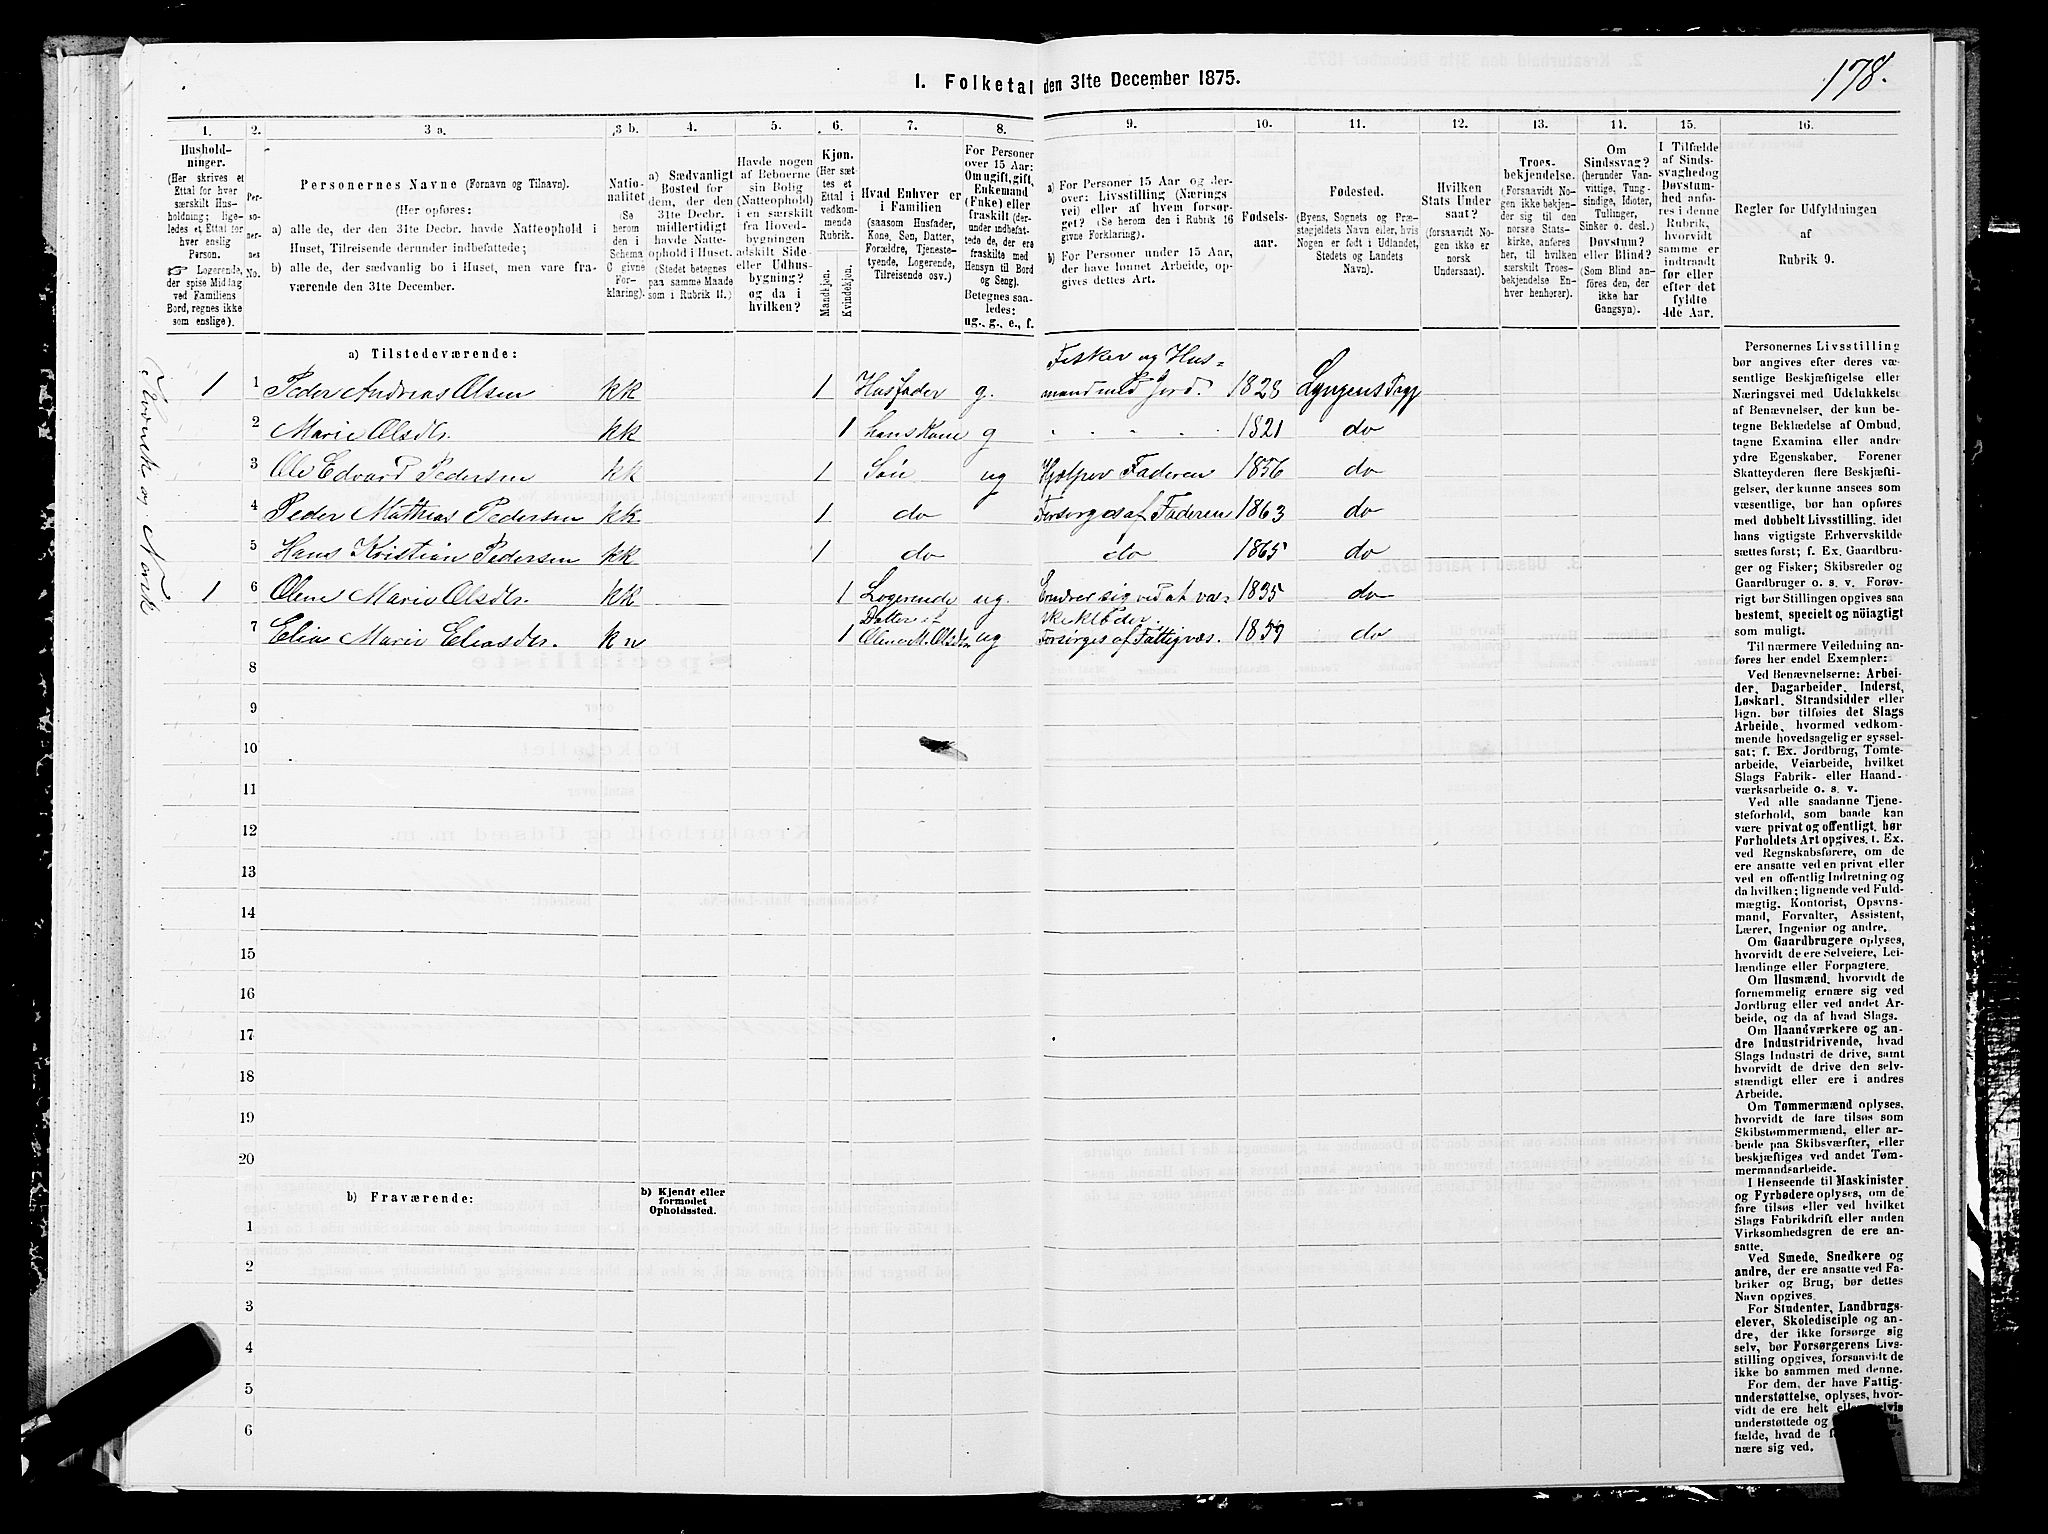 178.
I. Folketal den 31te December 1875.
1. 2. 3 a. 3 b. 4. 5. 6. 7. 8. 9. 10. 11. 12. 13. 14. 15. 16.
Hushold-
ninger.
(Her skrives et
Ettal for hver
særskilt Hus-
holdning; lige-
ledes et Ettal for
hver enslig
Person.
☞ Logerende,
der spise Middag
ved Familiens
Bord, regnes ikke
som enslige).
Per-
so-
ner-
nes
No.
Personernes Navne (Fornavn og Tilnavn).
(Her opføres:
a) alle de, der den 31te Decbr. havde Natteophold i
Huset, Tilreisende derunder indbefattede;
b) alle de, der sædvanlig bo i Huset, men vare fra-
værende den 31te December.
Natio-
nalitet
(Se
herom
den i
Schema
C givne
For-
klaring).
a) Sædvanligt
Bosted for
dem, der den
31te Decbr.
midlertidigt
havde Natte-
ophold i Huset.
(Stedet betegnes
paa samme Maade
som i Rubrik II.)
Havde nogen
af Beboerne
sin Bolig
(Natteophold)
i en særskilt
fra Hoved-
bygningen
adskilt Side-
eller Udhus-
bygning?
og da i
hvilken?
Kjøn.
(Her sæt-
tes et
Ettal i
vedkom-
mende
Rubrik.
Mandkjøn.
Kvindekjøn.
Hvad Enhver er
i Familien
(saasom Husfader,
Kone, Søn, Datter,
Forældre, Tjeneste-
tyende, Logerende,
Tilreisende osv.)
For Personer
over 15 Aar:
Om ugift, gift,
Enkemand
(Enke) eller
fraskilt (der-
under indbefat-
tede de, der ere
fraskilte med
Hensyn til Bord
og Seng).
Betegnes saa-
ledes:
ug., g., e., f.
a) For Personer 15 Aar og der-
over: Livsstilling (Nærings-
vei) eller af hvem forsør-
get? (Se herom den i Rubrik 16
givne Forklaring).
b) For Personer under 15 Aar,
der have lønnet Arbeide, op-
gives dettes Art.
Fødsels-
aar.
Fødested.
(Byens, Sognets og Præ-
stegjeldets Navn eller, hvis
Nogen er født i Udlandet,
Stedets og Landets
Navn).
Hvilken
Stats Under
saat?
(forsaavidt No-
gen ikke er
norsk
Undersaat).
Troes-
bekjendelse.
(Forsaavidt No-
gen ikke bekjen-
der sig til den
norske Stats-
kirke, anføres
her, til hvilken
særskilt Troes-
bekjendelse En-
hver henhører).
Om
Sindssvag?
(herunder Van-
vittige, Tung-
sindige, Idioter,
Tullinger,
Sinker o. desl.)
Døvstum?
eller Blind?
(Som Blind an-
føres den, der
ikke har
Gangsyn).
I Tilfælde
af Sinds-
svaghed og
Døvstum-
hed anfø-
res i denne
Rubrik,
hvorvidt
samme er
indtraadt
før eller
efter det
fyldte
4de Aar.
Regler for Udfyldningen
af
Rubrik 9.
a) Tilstedeværende:
1 1 Peder Andreas Olsen kk 1 Husfader g. Fisker og Hus-
mand med Jord. 1828 Lyngens Prgj
2 Marie Olsdtr. kk 1 hans Kone g " " " " 1821 do
3 Ole Edvard Pedersen kk 1 Søn ug Hjælper Faderen 1856 do
4 Peder Mathias Pedersen kk 1 do Forsørges af Faderen 1863 do
5 Hans Kristian Pedersen kk 1 do do 1865 do
1 6 Olene Marie Olsdtr. kk 1 Logerende ug. Ernærer sig ved at vas-
ke klæder. 1835 do
7 Elise Marie Eliasdtr. kn 1 Datter af
Olene M. Olsdtr ug Forsørges af Fattigvæs. 1859 do
8
9
10
11
12
13
14
15
16
17
18
19
20
b) Fraværende:
b) Kjendt eller
formodet
Opholdssted.
1
2
3
4
5
6
Personernes Livsstilling
bør angives efter deres væ-
sentlige Beskjæftigelse eller
Næringsvei med Udelukkelse
af Benævnelser, der kun be-
tegne Beklædelse af Ombud,
tagne Examina eller andre
ydre Egenskaber. Forener
Skatteyderen flere Beskjæfti-
gelser, der kunne ansees som
væsentlige, bør han opføres
med dobbelt Livsstilling, idet
hans vigtigste Erhvervskilde
sættes først; f. Ex. Gaardbru-
ger og Fisker; Skibsreder og
Gaardbruger o. s. v. Forøv-
rigt bør Stillingen opgives saa
bestemt, specielt og nöiagtigt
som muligt.
Til nærmere Veiledning an-
føres her endel Exempler:
Ved Benævnelserne: Arbei-
der, Dagarbeider, Inderst,
Løskarl, Strandsidder eller
lign. bør tilføies det Slags
Arbeide, hvormed vedkom-
mende hovedsagelig er syssel-
sat; f. Ex. Jordbrug, Tomte-
arbeide, Veiarbeide, hvilket
Slags Fabrik- eller Haand-
værksarbeide o. s. v.
Ved alle saadanne Tjene-
steforhold, som baade kan
være privat og offentligt, bør
Forholdets Art opgives, f. Ex.
ved Regnskabsførere, om de
ere ansatte ved en privat eller
ved en offentlig Indretning og
da hvilken; lignende ved Fuld-
mægtig, Kontorist, Opsyns-
mand, Forvalter, Assistent,
Lærer, Ingeniør og andre.
Om Gaardbrugere oplyses,
hvorvidt de ere Selveiere, Lei-
lændinge eller Forpagtere.
Om Husmænd, hvorvidt de
fornemmelig ernære sig ved
Jordbrug eller ved andet Ar-
beide, og da af hvad Slags.
Om Haandværkere og an-
dre Industridrivende, hvad
Slags Industri de drive, samt
hvorvidt de drive den selv-
stændigt eller ere i andres
Arbeide.
Om Tømmermænd oplyses,
hvorvidt de fare tilsøs som
Skibstømmermænd, eller ar-
beide paa Skibsværfter, eller
beskjæftiges ved andet Tøm-
mermandsarbeide.
I Henseende til Maskinister
og Fyrbødere oplyses, om de
fare tilsøs eller ved hvilket
Slags Fabrikdrift eller anden
Virksomhedsgren de ere an-
satte.
Ved Smede, Snedkere og
andre, der ere ansatte ved Fa-
briker og Brug, bør dettes
Navn opgives.
For Studenter, Landbrugs-
elever, Skoledisciple og an-
dre, der ikke forsørge sig
selv, bør Forsørgerens Livs-
stilling opgives, forsaavidt de
ikke bo sammen med denne.
For dem, der have Fattig-
understøttelse, oplyses, hvor-
vidt de ere helt eller delvis
understøttede og
fælde, hvad de
nære sig ved.
og Norsk